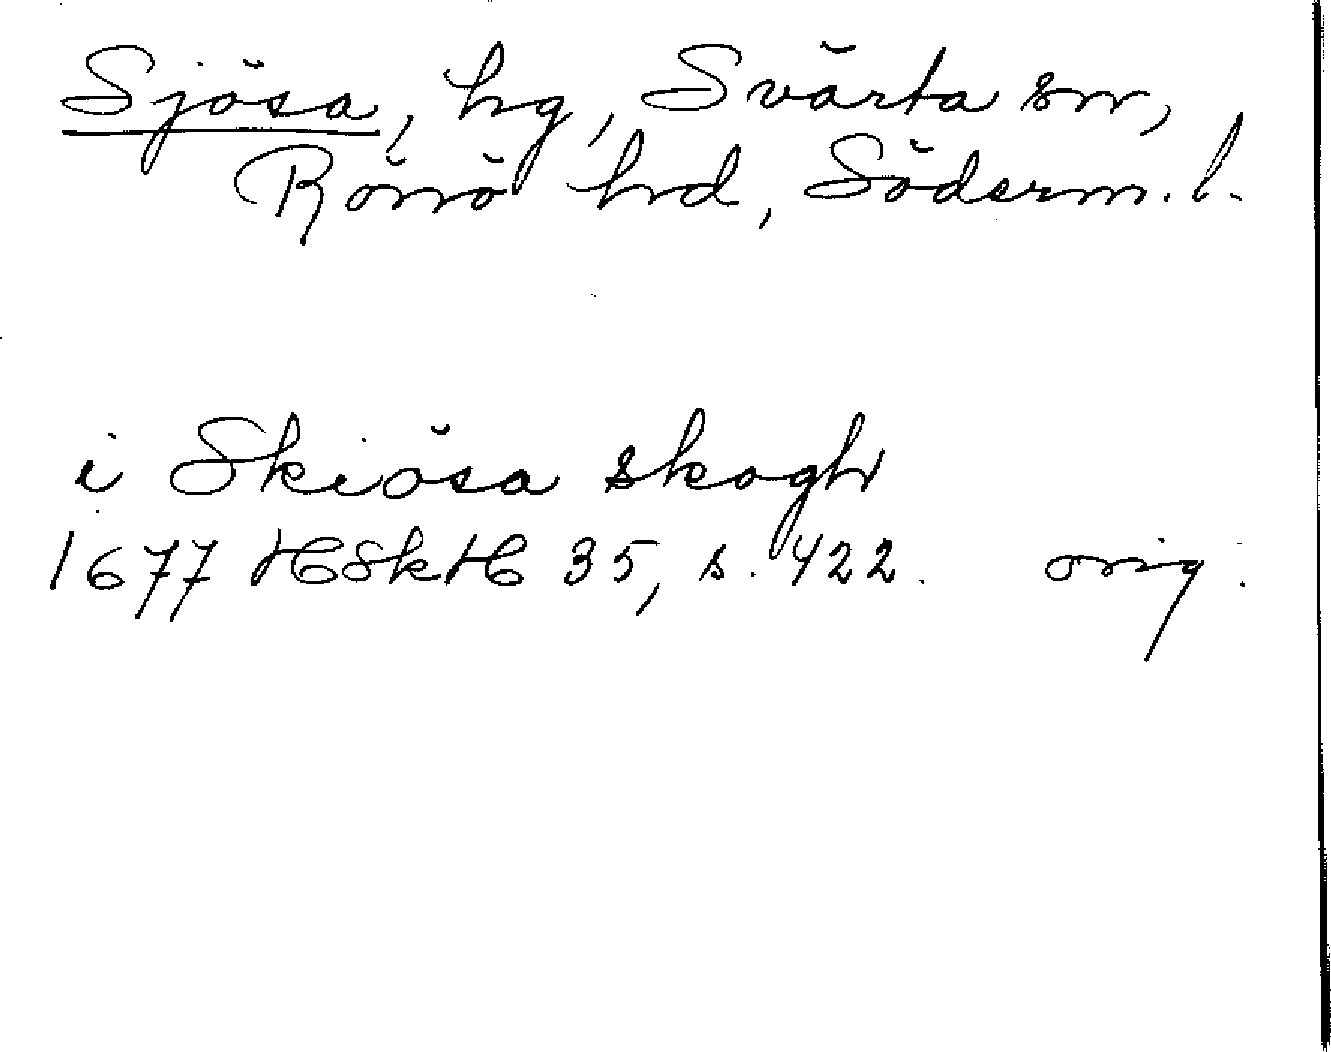 Sjösa, hg, Svärta sn,
Rönö hd, Söderm. l.
i Skiösa skogh
1677 HSkH 35, s. 422. orig.